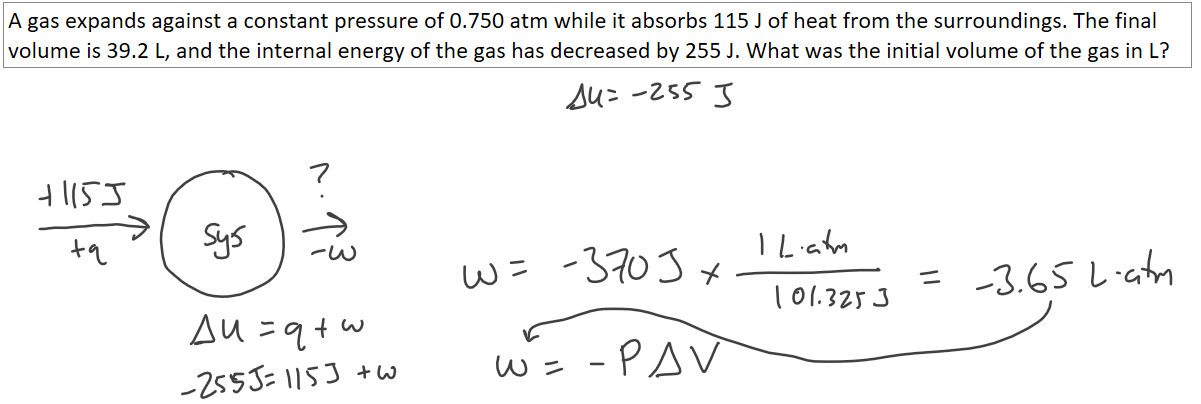 A gas expands against a constant pressure of 0.750 atm while it absorbs 115 J of heat from the surroundings. The final
volume is 39.2 L, and the internal energy of the gas has decreased by 255 J. What was the initial volume of the gas in L?
ΔU = -255 J
+115 J
+q
Sys
?
-w
ΔU = q + w
-255J = 115J + w
w = -370 J × 1 L·atm / 101.325 J = -3.65 L·atm
w = -PΔV